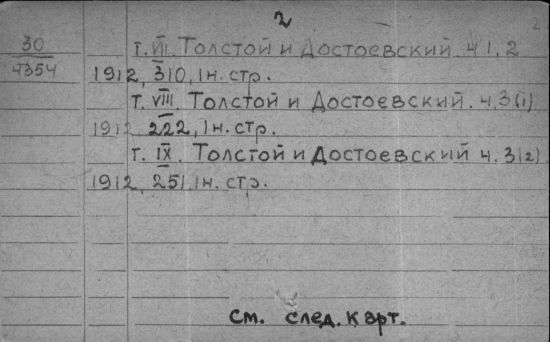 2 2
30 т. VII. Толстой и Достоевский. ч 1, 2
4354 1912, 310, 1 н. стр.
т. VIII. Толстой и Достоевский. ч. 3 (1)
1912 222, 1 н. стр.
т. IX. Толстой и Достоевский ч. 3 (2)
1912, 251, 1 н. стр.
см. след. карт.